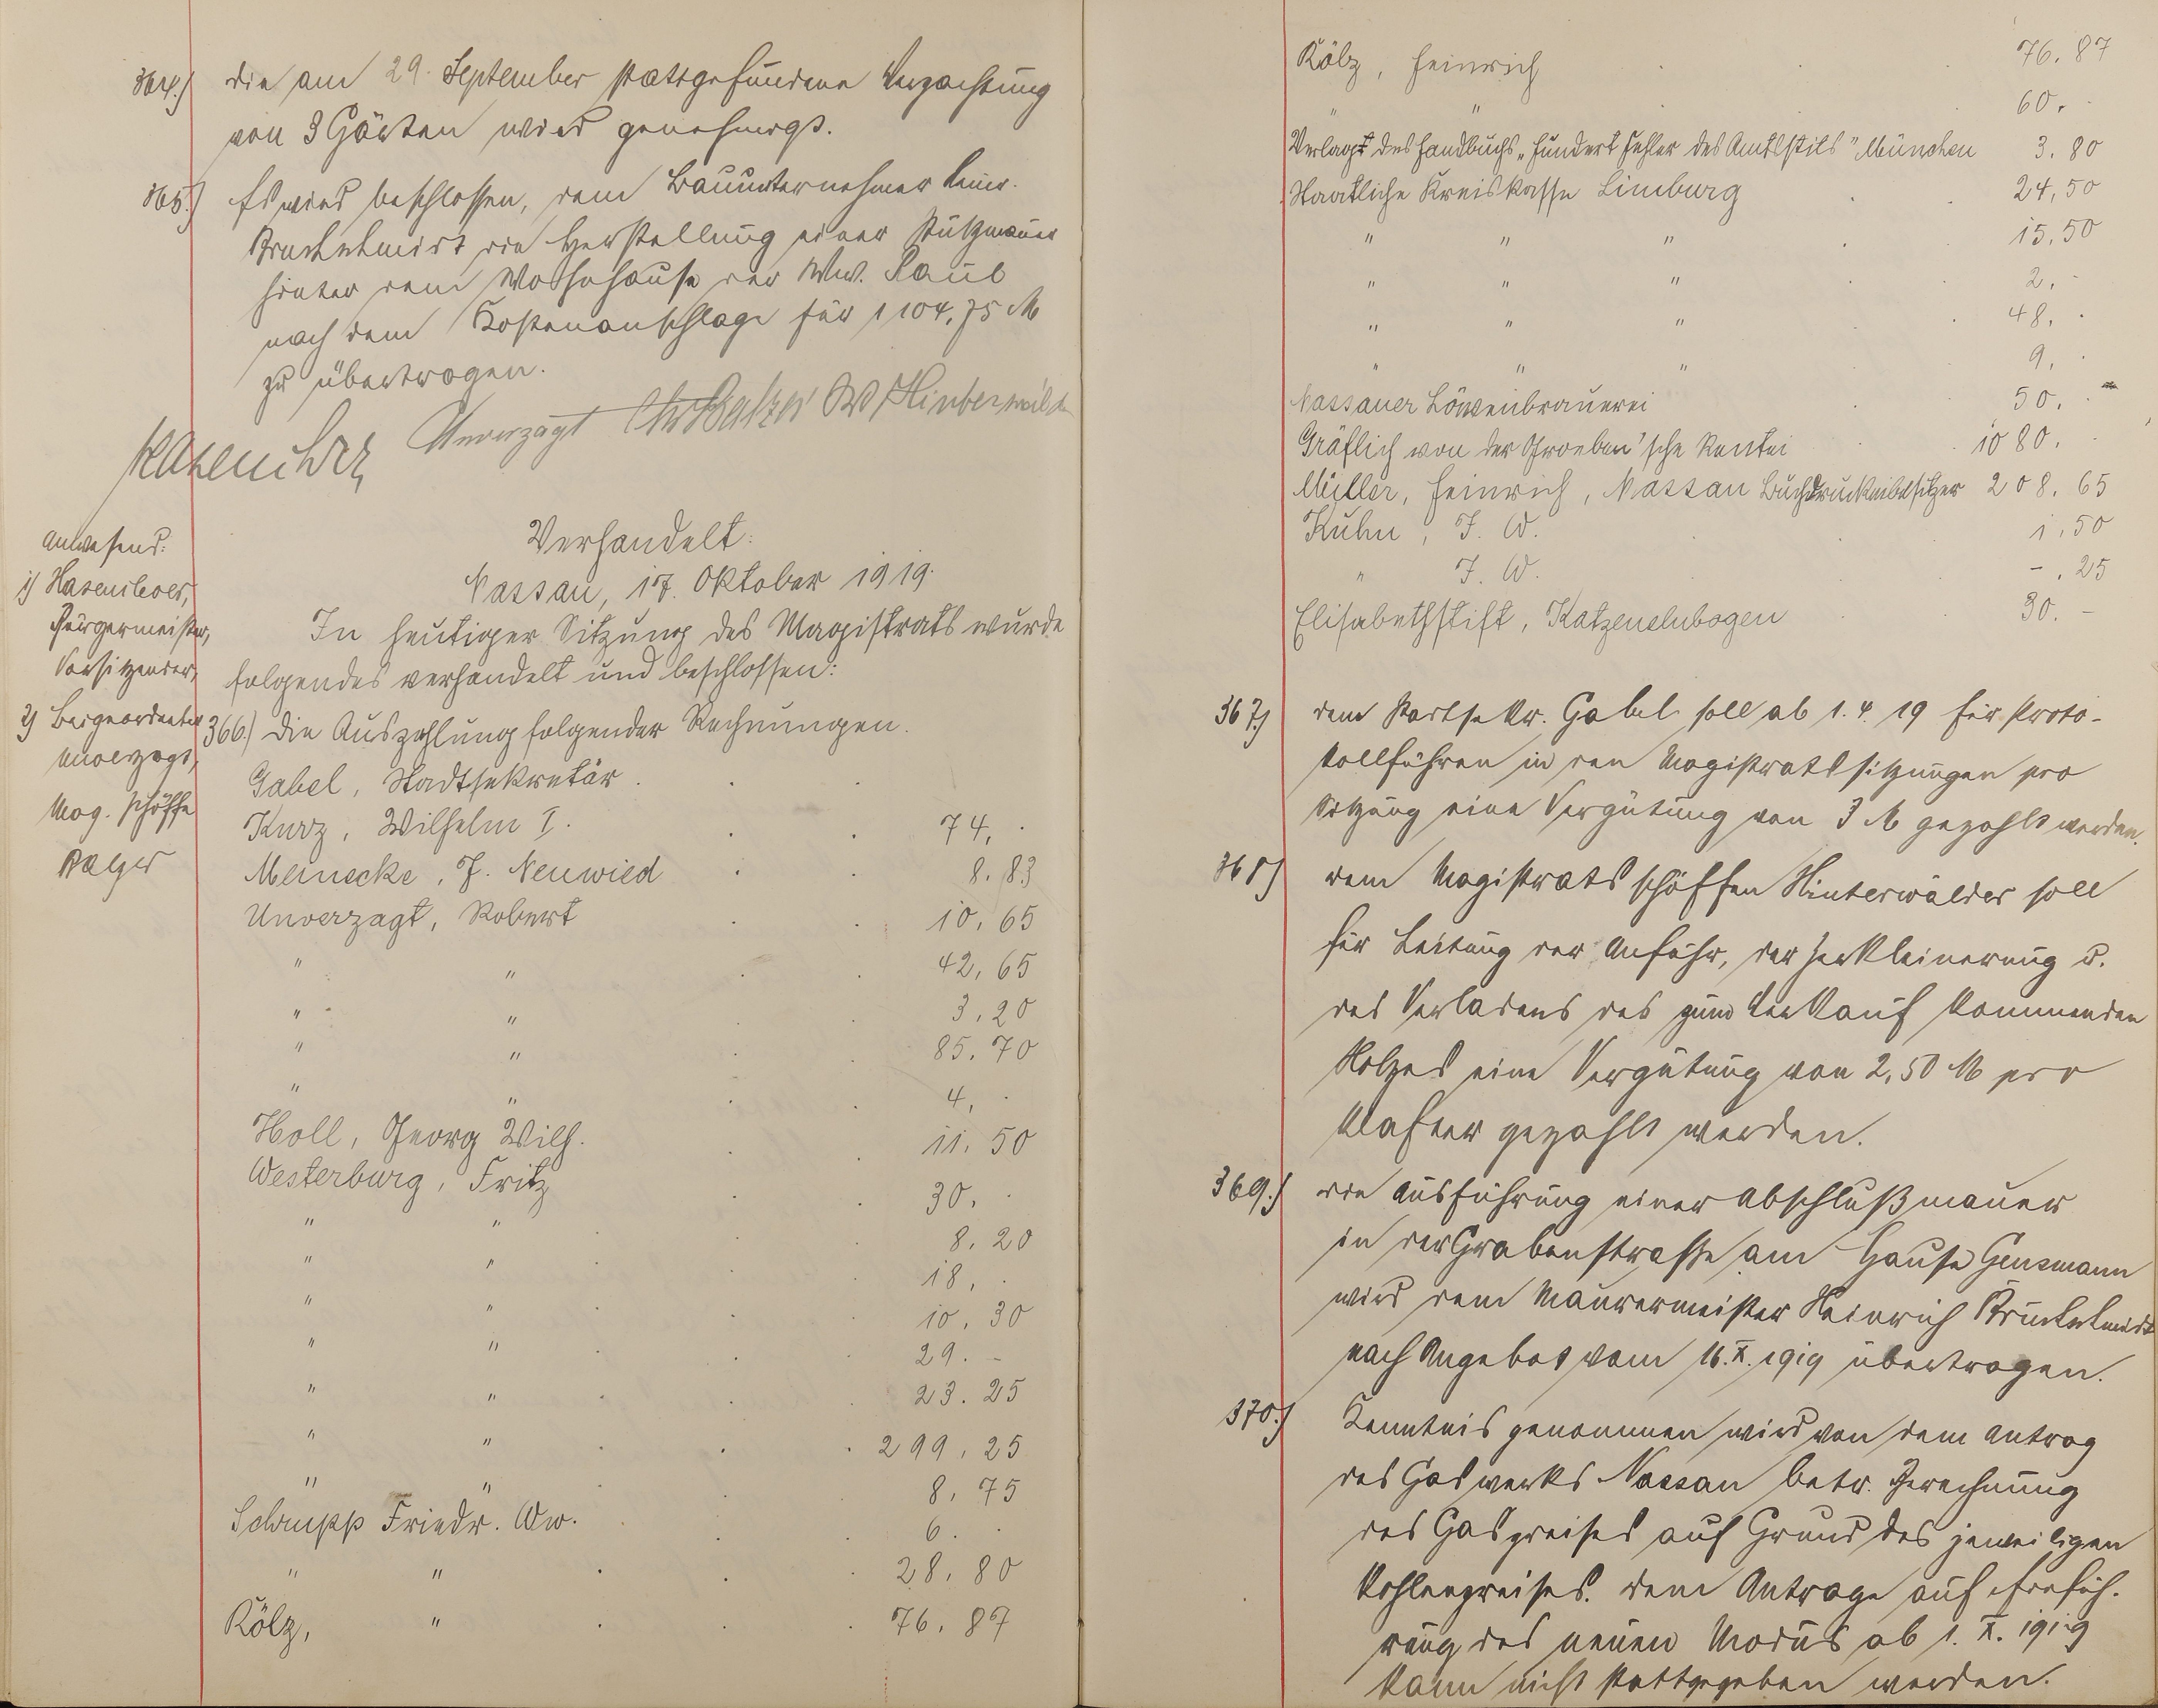 364.) die am 29. September stattgefundene Verpachtung
von 3 Gärten wird genehmigt.
365.) Es wird beschlossen, dem Bauunternehmer
die Herstellung einer Stützmauer
hinter dem Wohnhause der Ww. Raub
nach dem Kostenanschlage für 1104,75 M
zu übertragen.
Hasenclever Unverzagt Chr Balzer W Hinterwälder
Anwesend:
1) Hasenclever,
Bürgermeister,
Vorsitzender,
2) Beigeordneter
Unverzagt,
Mag. Schöffe
Balzer
Verhandelt:
Nassau, 17. Oktober 1919.
In heutiger Sitzung des Magistrats wurde
folgendes verhandelt und beschlossen:
366.) Die Auszahlung folgender Rechnungen.
Gabel, Stadtsekretär . .
Kurz, Wilhelm I. . . 74, .
Meinecke, F. Neuwied . . 8. 83
Unverzagt, Robert . . 10, 65
" " . . 42, 65
" " . . 3, 20
" " . . 85. 70
" " . . 4, .
Holl, Georg Wilh. . 11. 50
Westerburg, Fritz . . 30. .
" " . . 8. 20
" " . . . 18, .
" " . . . 10, 30
" " . . . 29. –
" " . . . 23. 25
" " . . . 299, 25
" " . . 8, 75
Schrupp Friedr. Ww. . . 6. .
" " . . . 28, 80
Kölz, " . . . 76. 87
Kölz, Heinrich . . 76. 87
" " . 60. .
Verlag des Handbuchs „Hundert Fehler des Amtsstils" München 3. 80
Staatliche Kreiskasse Limburg . . 24,50
" " " . 15,50
" " " . . 2. -
" " " . . 48. .
" " " . 9, .
Nassauer Löwenbrauerei . . 50. .
Gräflich von der Groeben'sche Rentei . 1080. .
Müller, Heinrich, Nassau Buchdruckereibesitzer 208. 65
Kuhn, F. W. . 1,50
" F. W. . - . 25
Elisabethstift, Katzenelnbogen . 30. –
367.) dem Stadtsekr. Gabel soll ab 1. 4. 19 für Proto-
kollführen in den Magistratssitzungen pro
Sitzung eine Vergütung von 3 M gezahlt werden.
368) dem Magistratsschöffen Hinterwälder soll
für Leitung der Anfuhr, der Zerkleinerung u.
des Verladens des zum Verkauf kommenden
Holzes eine Vergütung von 2,50 M pro
Klafter gezahlt werden.
369.) die Ausführung einer Abschlußmauer
in der Grabenstraße am Hause Gensmann
wird dem Maurermeister Heinrich
nach Angebot vom 16. X. 1919 übertragen.
370.) Kenntnis genommen wird von dem Antrag
des Gaswerks Nassau betr. Berechnung
des Gaspreises auf Grund des jeweiligen
Kohlenpreises. Dem Antrage auf Einfüh-
rung des neuen Modus ab 1. X. 1919
kann nicht stattgegeben werden.